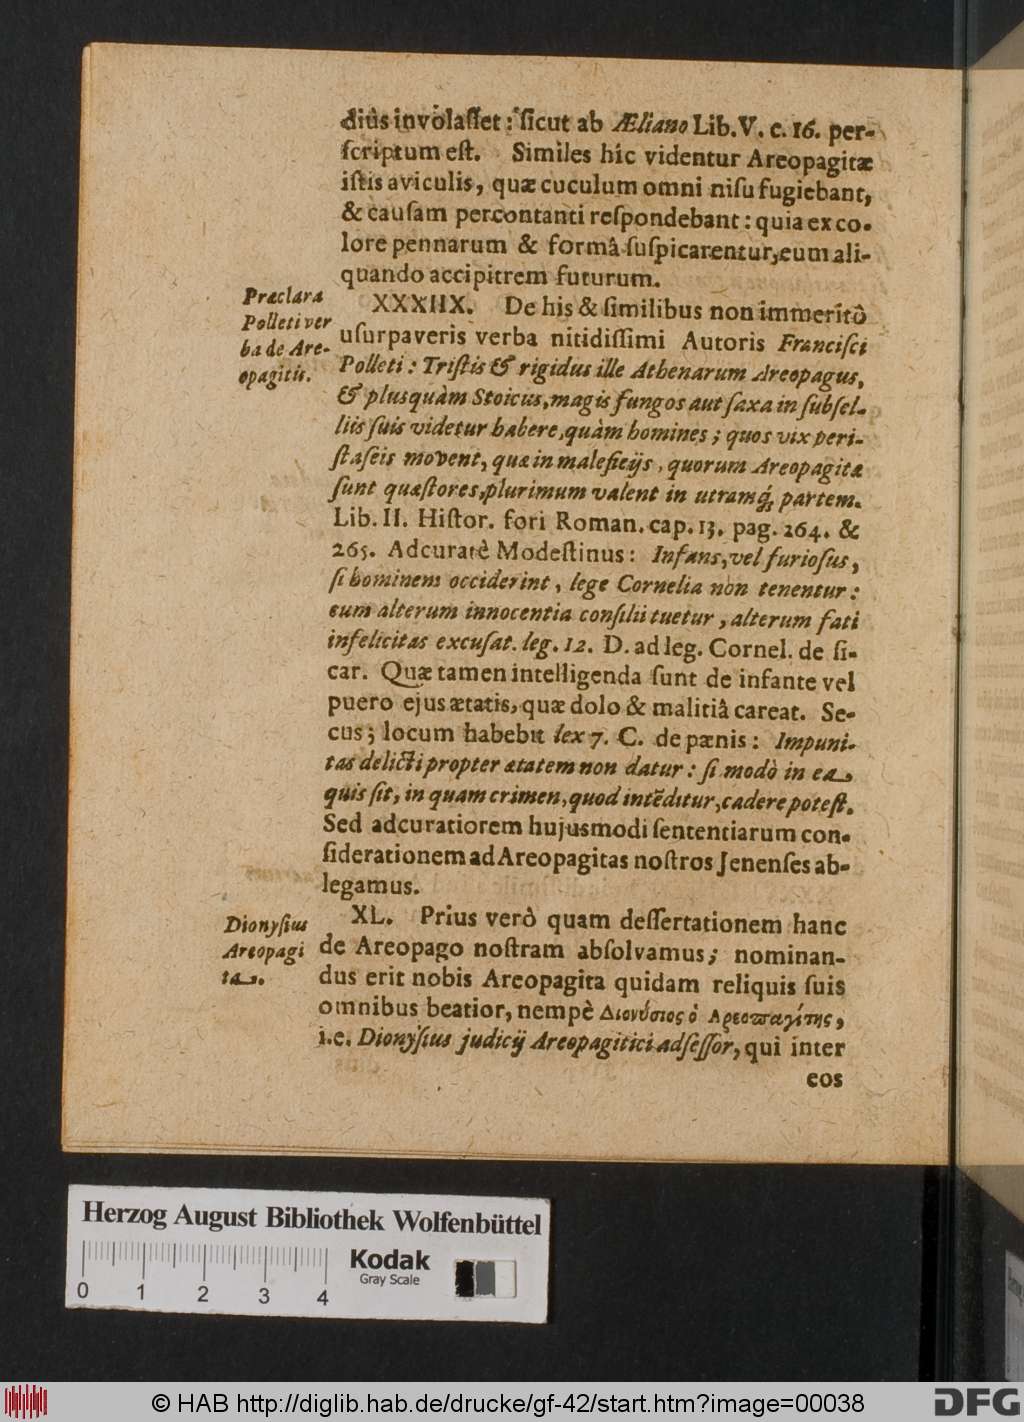 diùs involasset: sicut ab Æliano Lib. V. c. 16. per-
scriptum est. Similes hîc videntur Areopagitæ
istis aviculis, quæ cuculum omni nisu fugiebant,
& causam percontanti respondebant: quia ex co-
lore pennarum & formâ suspicarentur, eum ali-
quando accipitrem futurum.
Præclara
Polleti ver
ba de Are-
opagitis.
XXXIIX. De his & similibus non immeritò
usurpaveris verba nitidissimi Autoris Francisci
Polleti: Tristis & rigidus ille Athenarum Areopagus,
& plusquàm Stoicus, magis fungos aut saxa in subsel-
liis suis videtur habere, quàm homines; quos vix peri-
staseis movent, quæ in maleficijs, quorum Areopagitæ
sunt quæstores, plurimum valent in utramq́; partem.
Lib. II. Histor. fori Roman. cap. 13. pag. 264. &
265. Adcuratè Modestinus: Infans, vel furiosus,
si hominem occiderint, lege Cornelia non tenentur:
cum alterum innocentia consilii tuetur, alterum fati
infelicitas excusat. leg. 12. D. ad leg. Cornel. de si-
car. Quæ tamen intelligenda sunt de infante vel
puero ejus ætatis, quæ dolo & malitiâ careat. Se-
cus; locum habebit lex 7. C. de pænis: Impuni-
tas delicti propter ætatem non datur: si modò in ea,
quis sit, in quam crimen, quod intẽditur, cadere potest.
Sed adcuratiorem hujusmodi sententiarum con-
siderationem ad Areopagitas nostros Jenenses ab-
legamus.
Dionysius
Areopagi
ta.
XL. Prius verò quam dessertationem hanc
de Areopago nostram absolvamus; nominan-
dus erit nobis Areopagita quidam reliquis suis
omnibus beatior, nempè Διονύσιος ὁ Αρεοπαγίτης,
i.e. Dionysius judicij Areopagitici adsessor, qui inter
eos
Herzog August Bibliothek Wolfenbüttel
Kodak
Gray Scale
0 1 2 3 4
© HAB http://diglib.hab.de/drucke/gf-42/start.htm?image=00038
DFG